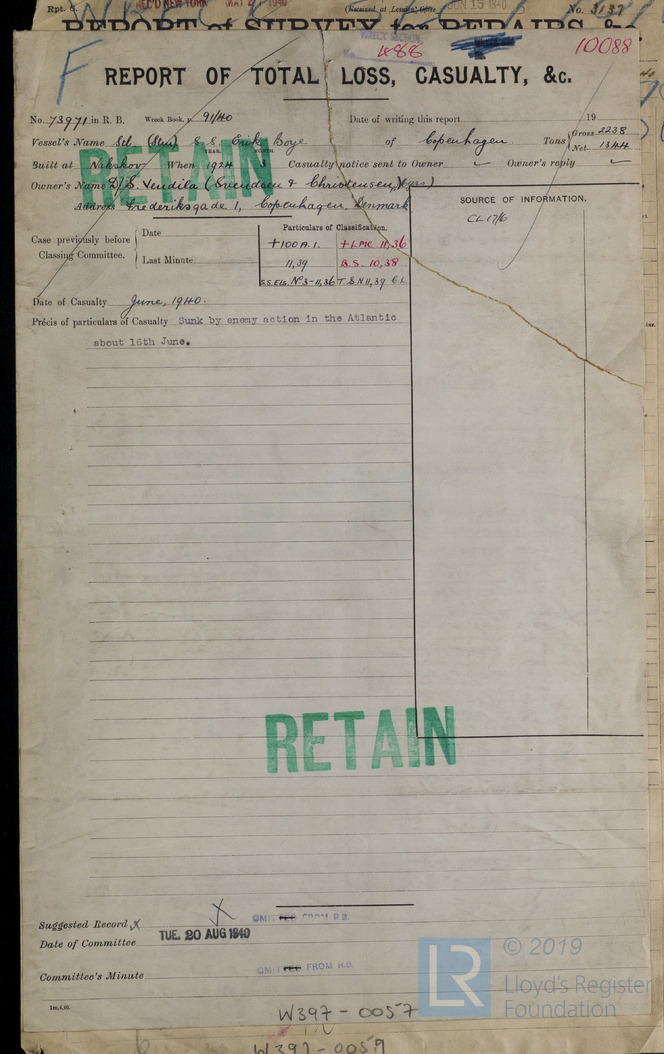 Rpt. 8.
REC'D NEW YORK MAY 1940
(Received at London Office JUN 15 1940
No. 3137
REPORT of SURVEY for REPAIRS, &c
WRECK SECTION
No. 488
10088
F
REPORT OF TOTAL LOSS, CASUALTY, &c.
No. 73971 in R. B. Wreck Book, p. 91/40 Date of writing this report 19
Vessel's Name Stl (Stm) S.S. Erik Boye of Copenhagen. Tons Gross 2238
Net 1344
YEAR. MONTH.
Built at Nakskov When 1924 3 Casualty notice sent to Owner ✓ Owner's reply ✓
Owner's Name D/S. Vendila (Svendsen & Christensen, Mgrs)
Address Frederiksgade 1, Copenhagen, Denmark
RETAIN
SOURCE OF INFORMATION.
CL 17/6
Case previously before Classing Committee.
Date
Last Minute
Particulars of Classification.
+100 A.1. +LMC 11,36
11,39 B.S. 10,38
S.S.Els. No 3-11,36 T.S.N 11,39 C.L
Date of Casualty June, 1940.
Précis of particulars of Casualty Sunk by enemy action in the Atlantic
about 16th June.
RETAIN
Suggested Record X X OMITTED FROM R.B.
Date of Committee TUE. 20 AUG 1940
Committee's Minute OMITTED FROM R.B.
1m,4,40.
LR
© 2019
Lloyd's Register
Foundation
W397-0057
W397-0059